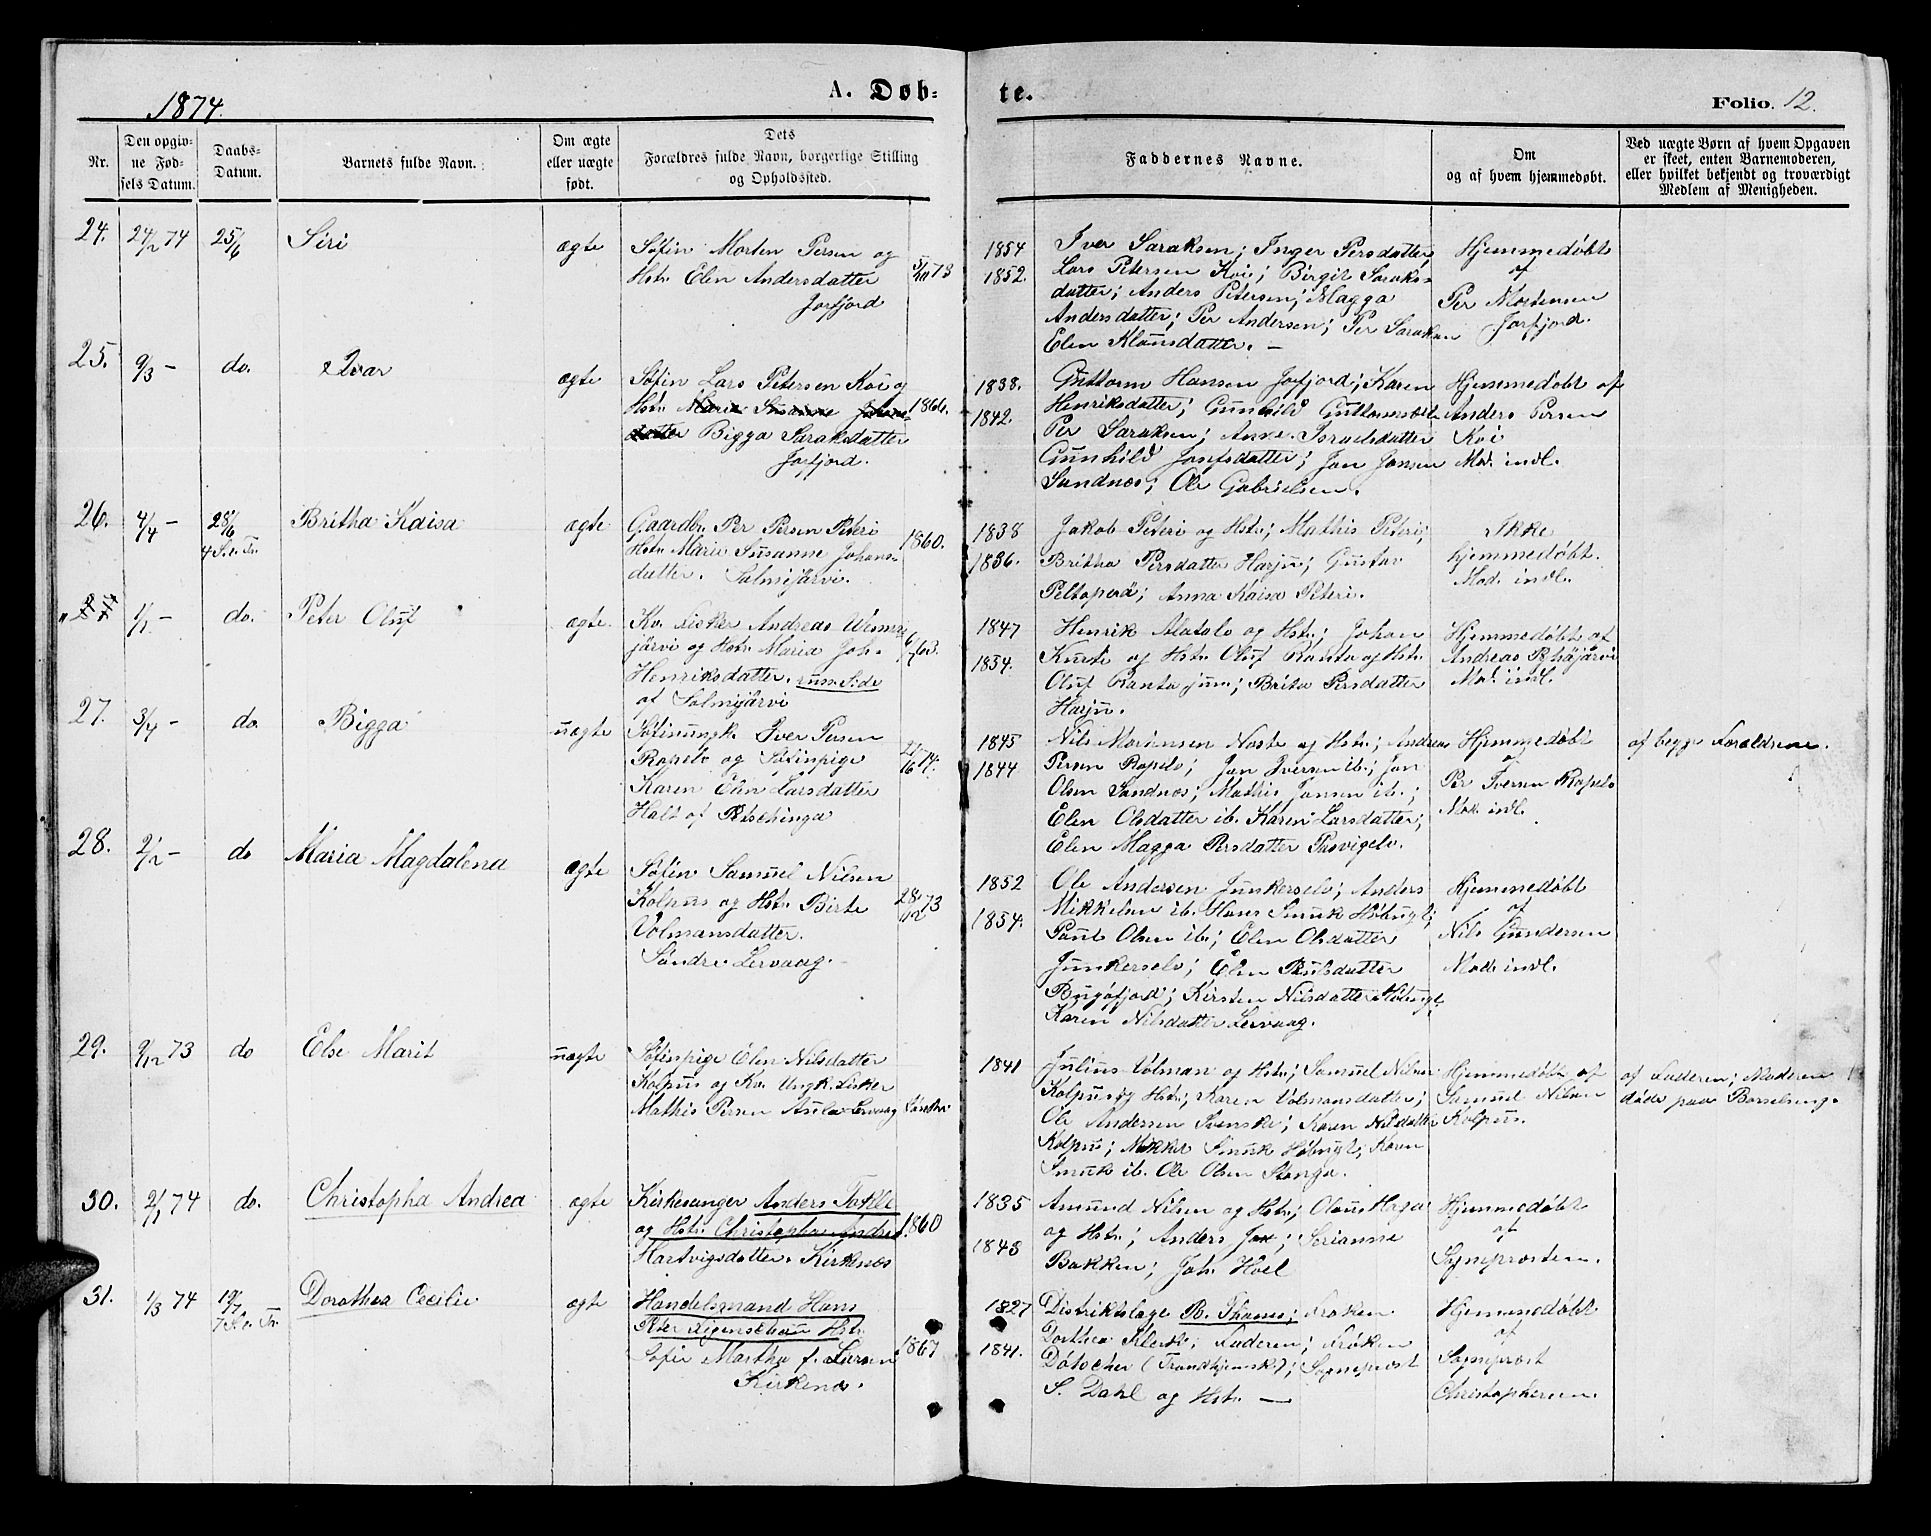 1874.
A. Døb-
te.
Folio. 12.
Nr.
Den opgiv-
ne Fød-
sels Datum.
Daabs-
Datum.
Barnets fulde Navn.
Om ægte
eller uægte
født.
Dets
Forældres fulde Navn, borgerlige Stilling
og Opholdssted.
Faddernes Navne.
Om
og af hvem hjemmedøbt.
Ved uægte Børn af hvem Opgaven
er skeet, enten Barnemoderen,
eller hvilket bekjendt og troværdigt
Medlem af Menigheden.
24. 24/2 74 25/6 Siri ægte
Søfin Morten Persen og
Hstr. Elen Andersdatter
Jarfjord
5/10 73
1854
1852.
Iver Saraksen; Inger Persdatter
Lars Petersen Koi; Birgit Saraks-
datter; Anders Petersen; Magga
Andersdatter; Per Andersen; Per Saraksen
Elen Klausdatter. —
Hjemmedøbt
af
Per Mortensen
Jarfjord.
25. 9/3 — do. Ivar ægte
Søfin Lars Petersen Koi og
Hstr. Maria Susanne Johans-
datter Bigga Saraksdatter
Jarfjord.
1866.
1838.
1842.
Guttorm Hansen Jarfjord; Karen
Henriksdatter; Gunhild Guttormsdtr
Per Saraksen; Anne Israelsdatter
Gunhild Josefsdatter; Jon Jonsen
Sandnes; Ole Gabrielsen.
Hjemmedøbt af
Anders Persen
Koi
Mod. indl.
26. 4/4 — 28/6
4 S. e. Tr.
Britha Kaisa ægte
Gaardbr. Per Persen Peteri
Hstr. Maria Susanne Johans-
datter. Salmijärvi.
1860.
1838
1836.
Jakob Peteri og Hstr; Mathis Peteri;
Britha Persdatter Harju; Gustav
Peltoperä; Anna Kaisa Peteri.
Ikke
hjemmedøbt.
Mod. indl.
1/1 — do. Peter Oluf ægte.
Kv. Fisker Andreas
järvi og Hstr. Maria Joh.
Henriksdatter. russ. Side
af Salmijärvi
1847
1834.
Henrik Alatalo og Hstr; Johan
Kurti og Hstr. Oluf Ranta og Hstr.
Oluf Ranta jun; Brita Persdatter
Harju.
Hjemmedøbt af
Andreas
Mod. indl.
27. 3/4 — do. Bigga uægte
Søfinungk. Iver Persen
Rapelv og Søfinpige
Karen Elen Larsdatter
Halt af Petschinga
1845
1844
Nils Mortensen Noste og Hstr.; Andreas
Persen Rapelv; Jon Iversen ib.; Jon
Olsen Sandnes; Mathis Jonsen ib.;
Elen Olsdatter ib. Karen Larsdatter;
Elen Magga Persdatter Pasvigelv.
Hjemmedøbt
af
Per Iversen Rapelv
Mod. indl.
af begge Forældrene.
28. 2/2 — do Maria Magdalena ægte
Søfin Samuel Nilsen
Kolpus og Hstr. Birte
Volmansdatter.
Søndre Lervaag.
28/12 73
1852
1854.
Ole Andersen Junkerselv; Anders
Mikkelsen ib. Hans Smuk Høbugt;
Paul Olsen ib.; Elen Olsdatter
Junkerselv; Elen Paulsdatter
Bugøfjord; Kirsten Nilsdatter Høbugt.
Karen Nilsdatter Lervaag.
Hjemmedøbt
af
Nils Gundersen
Mod. indl.
29. 9/12 73 do Else Marit uægte
Søfinpige Elen Nilsdatter
Kolpus og Kv. Ungk. Fisker
Mathis Persen Aula Lervaag Søndre
1841
Julius Volman og Hstr; Samuel Nilsen
Kolpus og Hstr; Karen Volmansdatter;
Ole Andersen Svenske; Karen Nilsdatter
Kolpus; Mikkel Smuk Høbugt; Karen
Smuk ib. Ole Olsen Stanga.
Hjemmedøbt af
Samuel Nilsen
Kolpus.
af Faderen; Moderen
døde paa Barselseng.
30. 2/1 74 do. Christopha Andrea ægte
Kirkesanger Anders Takle
og Hstr. Christopha Andrea
Hartvigsdatter. Kirkenes
1860
1835
1843
Amund Nilsen og Hstr; Olaus Haga
og Hstr; Anders Jax; Serianne
Bakken; Joh. Hoel
Hjemmedøbt
af
Sogneprosten.
31. 1/3 74 19/7
7 S. e. Tr.
Dorothea Cecilie ægte
Handelsmand Hans
Peter Figenschau Hstr.
Sofie Martha f. Larsen
Kirkenes.
1867
1827
1841.
Distriktslæge B. Thams; Frøken
Dorthea Klerk; Faderen; Frøken
Døtscher (Trondhjemsk?); Sogneprost
S. Dahl og Hstr. —
Hjemmedøbt
af
Sogneprost
Christophersen.